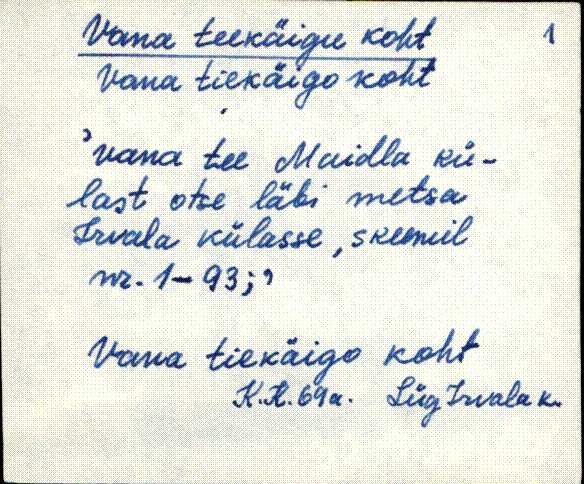 Vana teekäigu koht 1
Vana tiekäigo koht
'vana tee Maidla kü-
last otse läbi metsa
Irvala külasse, skeemil
nr. 1-93;'
Vana tiekäigo koht
K.A. 69a. Lüg Irvala k.